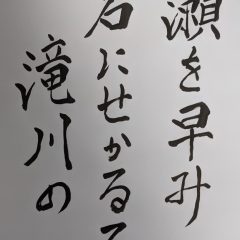 瀬を早み
岩にせかるる
滝川の